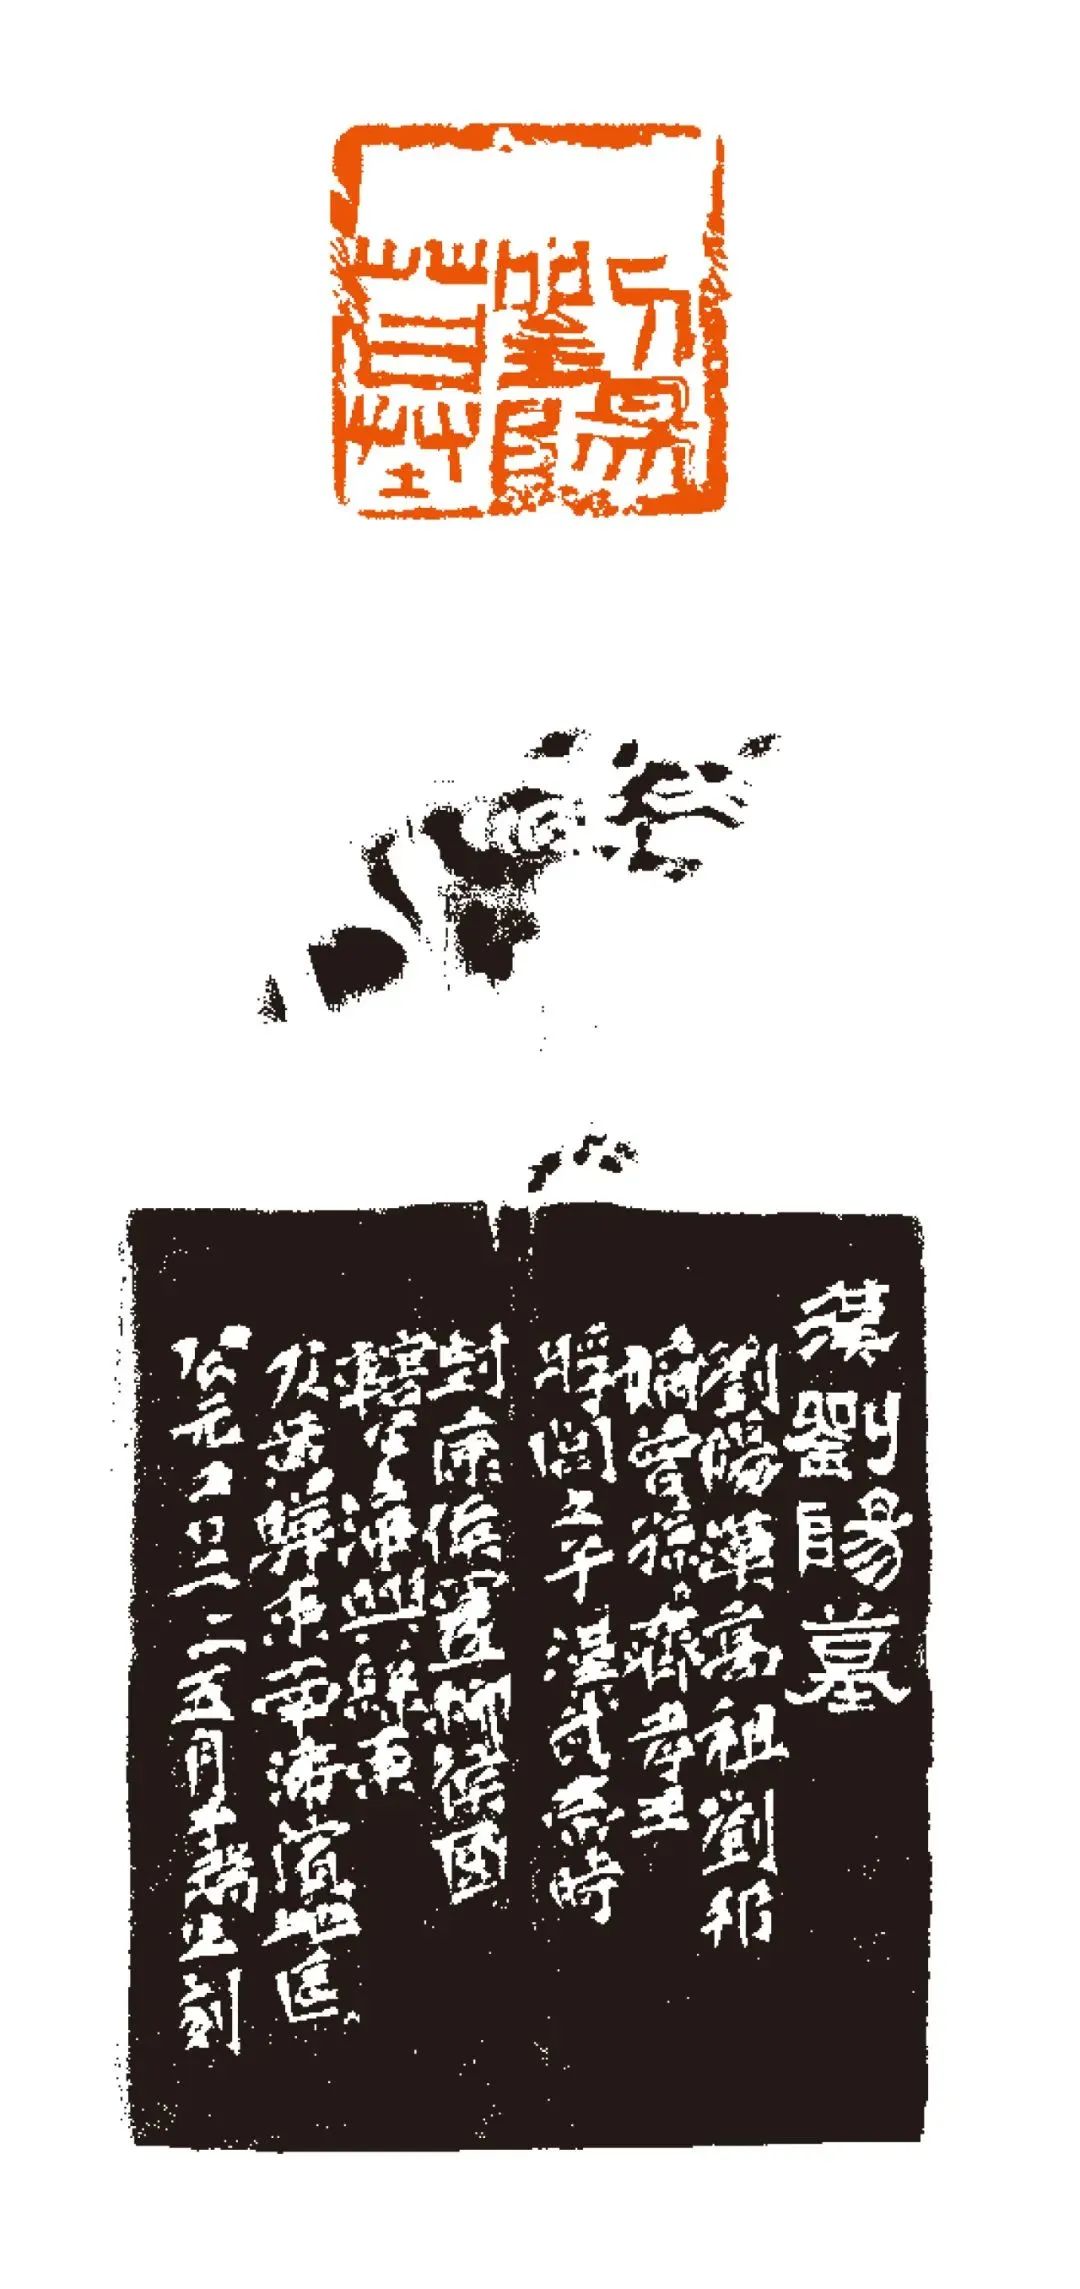 劉陽墓
漢劉陽墓
劉陽漢高祖劉邦
嫡曾孫齊孝王
將閭之子漢武帝時
封康侯置柳侯國
轄今海興縣東
及黃驊東南海濱地區
公元二〇二二五月刻